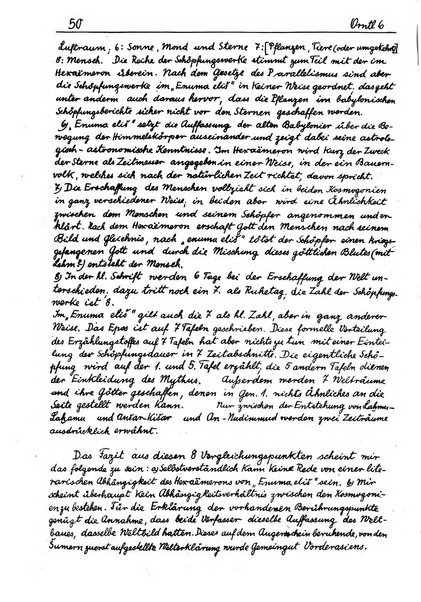 50 Orntl 6
Luftraum, 6: Sonne, Mond und Sterne 7: [Pflanzen, Tiere (oder umgekehrt)]
8: Mensch. Die Reihe der Schöpfungswerke stimmt zum Teil mit der im
Hexaëmeron überein. Nach dem Gesetze des Parallelismus sind aber
die Schöpfungswerke im „Enuma eliš" in keiner Weise geordnet, das geht
unter anderm auch daraus hervor, dass die Pflanzen im babylonischen
Schöpfungsberichte sicher nicht vor den Sternen geschaffen worden.
6) „Enuma eliš" setzt die Auffassung der alten Babylonier über die Be-
wegung der Himmelskörper auseinander und zeigt dabei seine astrolo-
gisch-astronomische Kenntnisse. Im Hexaëmeron wird kurz der Zweck
der Sterne als Zeitmesser angegeben in einer Weise, in der ein Bauern-
volk, welches sich nach der natürlichen Zeit richtet, davon spricht.
7) Die Erschaffung des Menschen vollzieht sich in beiden Kosmogonien
in ganz verschiedener Weise, in beiden aber wird eine Ähnlichkeit
zwischen dem Menschen und seinem Schöpfer angenommen und er-
klärt. Nach dem Hexaëmeron erschafft Gott den Menschen nach seinem
Bild und Gleichnis, nach „enuma eliš" tötet der Schöpfer einen kriegs-
gefangenen Gott und durch die Mischung dieses göttlichen Blutes (mit
Lehm?) entsteht der Mensch.
8) In der hl. Schrift werden 6 Tage bei der Erschaffung der Welt un-
terschieden. dazu tritt noch ein 7. als Ruhetag, die Zahl der Schöpfungs-
werke ist 8.
Im „Enuma eliš" gilt auch die 7 als hl. Zahl, aber in ganz anderer
Weise. Das Epos ist auf 7 Tafeln geschrieben. Diese formelle Verteilung
des Erzählungstoffes auf 7 Tafeln hat aber nichts zu tun mit einer Eintei-
lung der Schöpfungsdauer in 7 Zeitabschnitte. Die eigentliche Schö-
pfung wird auf der 1. und 5. Tafel erzählt, die 5 andern Tafeln dienen
der Einkleidung des Mythus. Außerdem werden 7 Welträume
und ihre Götter geschaffen, denen in Gen. 1. nichts Ähnliches an die
Seite gestellt werden kann. Nur zwischen der Entstehung von Lahmu-
Lahamu und Anšar-Kišar und An-Nudimmud werden zwei Zeiträume
ausdrücklich erwähnt.
Das Fazit aus diesen 8 Vergleichungspunkten scheint mir
das folgende zu sein: a) Selbstverständlich kann keine Rede von einer lite-
rarischen Abhängigkeit des Hexaëmerons von „Enuma eliš" sein. b) Mir
scheint überhaupt kein Abhängigkeitsverhältnis zwischen den Kosmogoni-
en zu bestehen. Für die Erklärung der vorhandenen Berührungspunkte
genügt die Annahme, dass beide Verfasser dieselbe Auffassung des Welt-
baues, dasselbe Weltbild hatten. Dieses auf dem Augenschein beruhende, von den
Sumern zuerst aufgestellte Welterklärung wurde Gemeingut Vorderasiens.